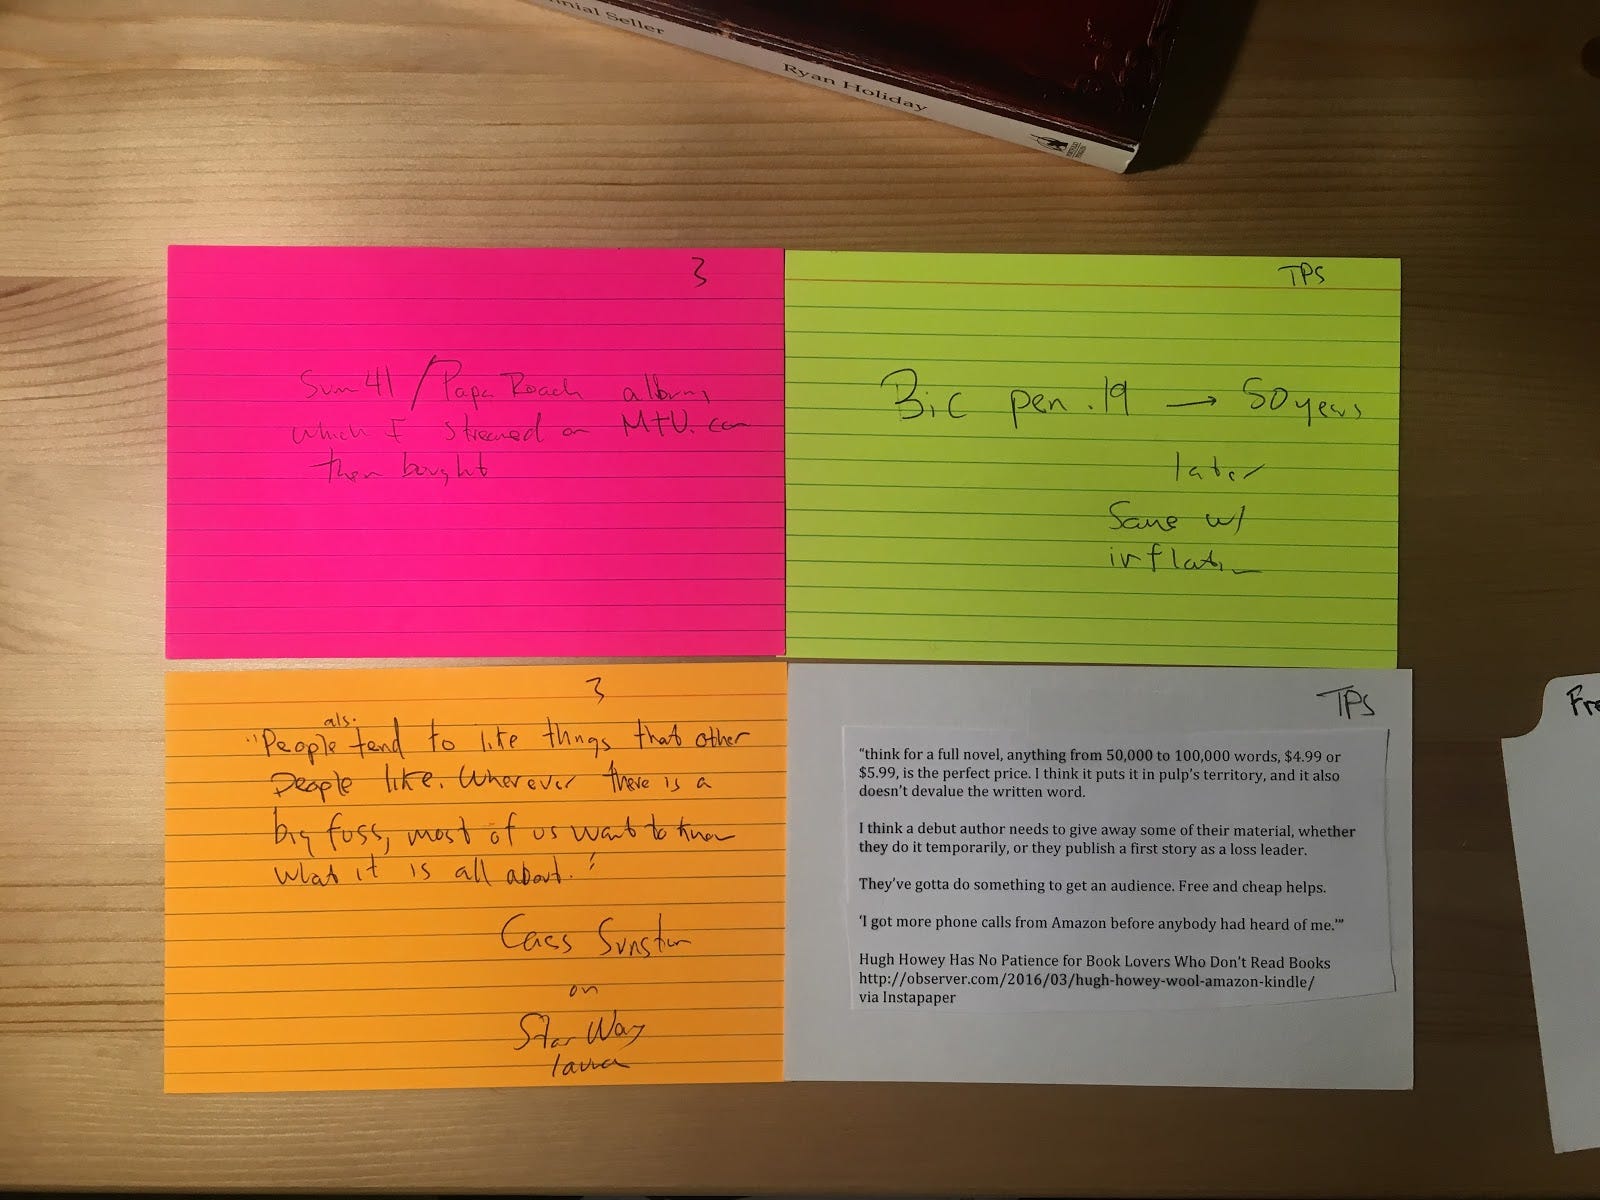 nnial Seller
Ryan Holiday
3
Sum 41 / Papa Roach albums
which I streamed on MTV.com
then bought
TPS
Bic pen .19 → 50 years
later
Same w/
inflation
3
als.
"People tend to like things that other
people like. Wherever there is a
big fuss, most of us want to know
what it is all about."
Cass Sunstein
on
Star Wars
launch
TPS
“think for a full novel, anything from 50,000 to 100,000 words, $4.99 or
$5.99, is the perfect price. I think it puts it in pulp’s territory, and it also
doesn’t devalue the written word.
I think a debut author needs to give away some of their material, whether
they do it temporarily, or they publish a first story as a loss leader.
They’ve gotta do something to get an audience. Free and cheap helps.
‘I got more phone calls from Amazon before anybody had heard of me.’”
Hugh Howey Has No Patience for Book Lovers Who Don’t Read Books
http://observer.com/2016/03/hugh-howey-wool-amazon-kindle/
via Instapaper
Fre